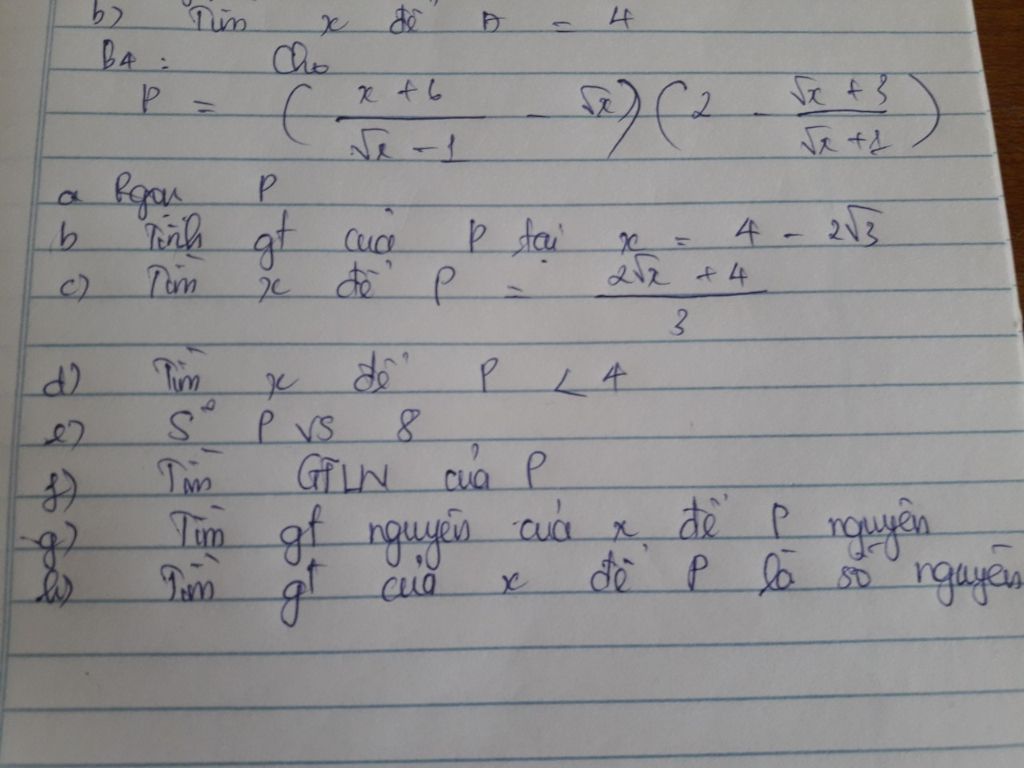 b) Tìm x để A = 4
B4: Cho
P = ( (x + 6)/(√x - 1) - √x ) ( 2 - (√x + 3)/(√x + 1) )
a Rgọn P
b Tính gt của P tại x = 4 - 2√3
c) Tìm x để P = (2√x + 4)/3
d) Tìm x để P < 4
e) S² P vs 8
f) Tìm GTLN của P
g) Tìm gt nguyên của x để P nguyên
h) Tìm gt của x để P là số nguyên